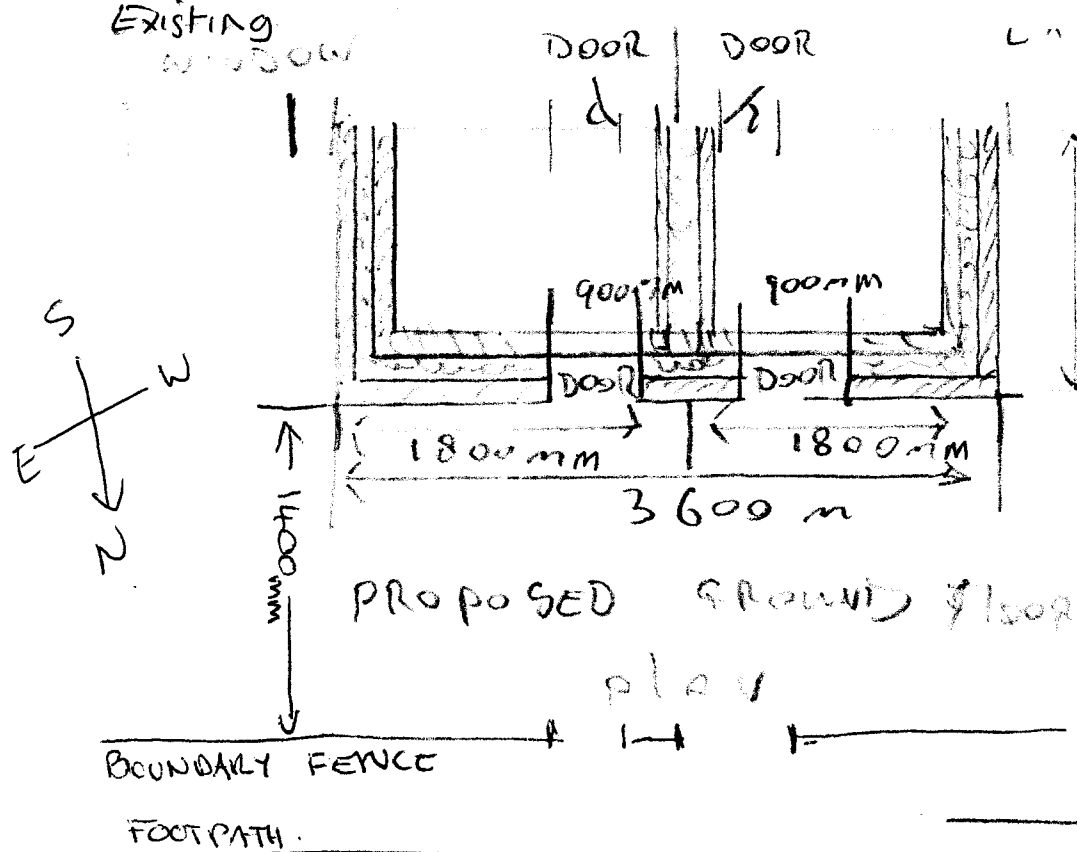 Existing
WINDOW
DOOR DOOR
900mm 900mm
DOOR DOOR
1800mm 1800mm
3600 m
S
W
E
N
1400
mm
PROPOSED GROUND FLOOR
plan
BOUNDARY FENCE
FOOTPATH.